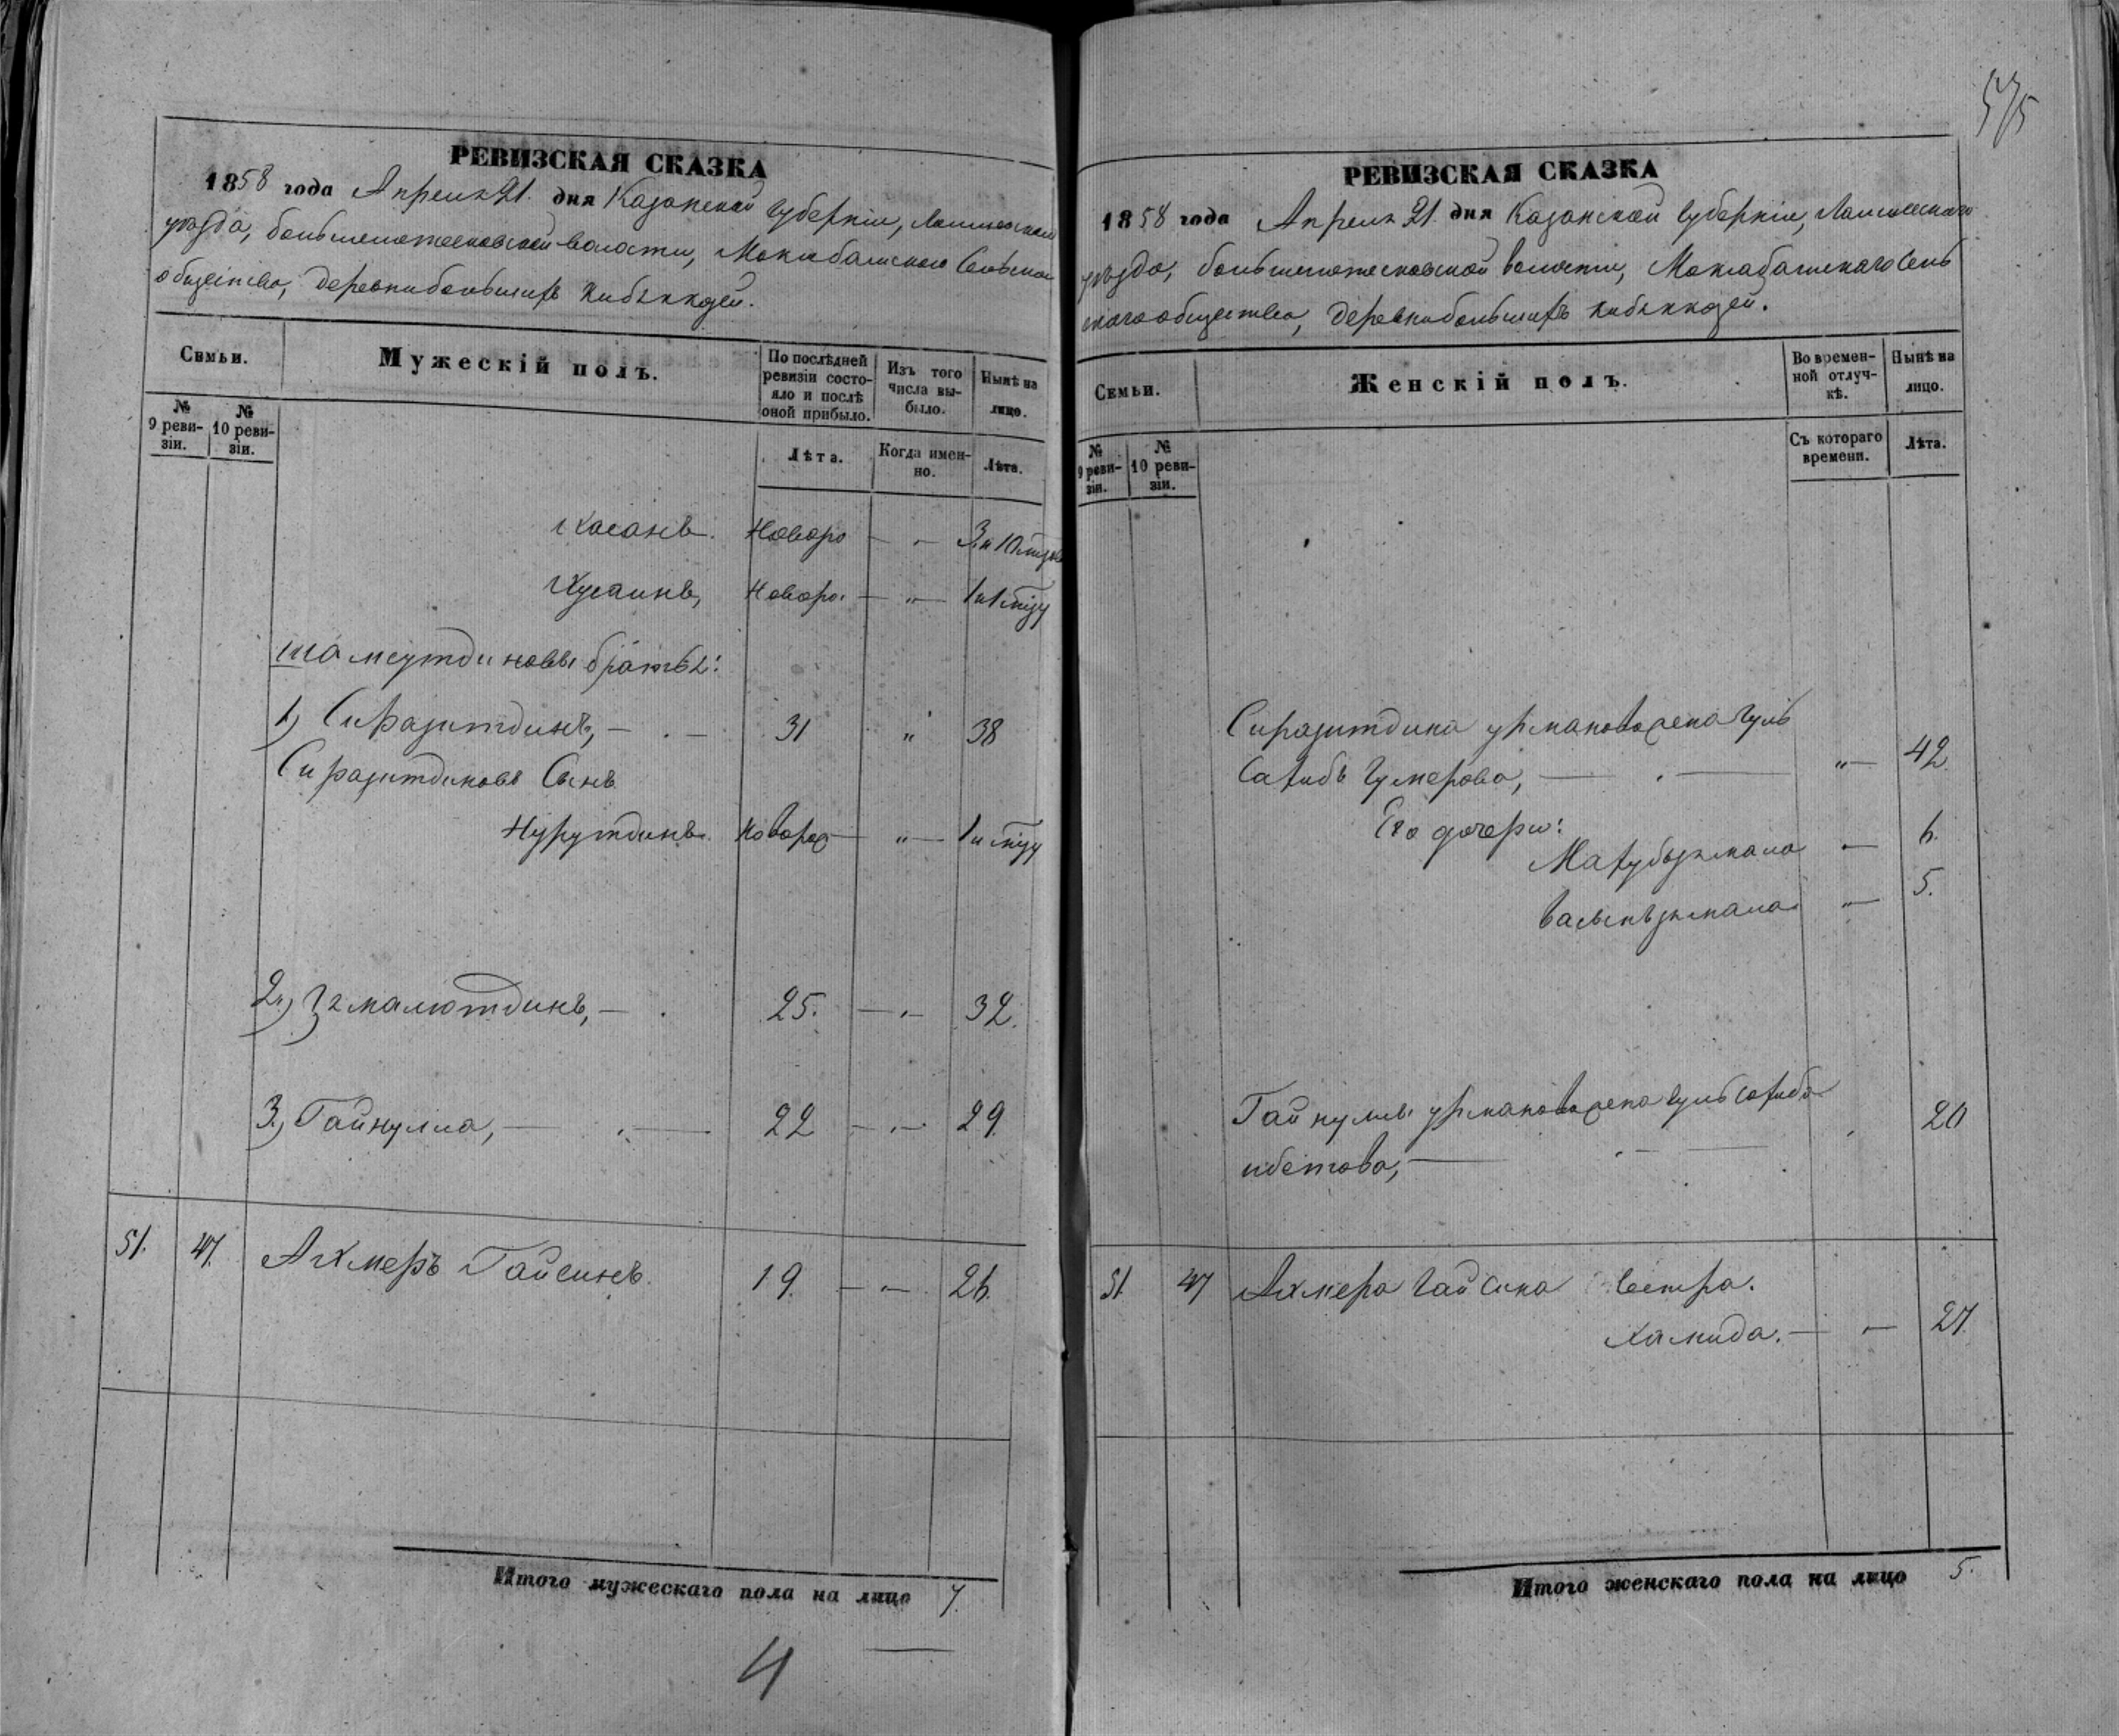 РЕВИЗСКАЯ СКАЗКА
1858 года Апреля 21. дня Казанской Губерніи, Лаишевскаго
уѣзда, волости, Сельскаго
общества, деревни большихъ Кибякъ
Семьи.
Мужескій полъ.
По послѣдней ревизіи состояло и послѣ оной прибыло.
Изъ того числа выбыло.
Нынѣ на лицо.
№ 9 ревизіи.
№ 10 ревизіи.
Лѣта.
Когда именно.
Лѣта.
Хасанъ. Новоро — „ — 3 и 10
Хусаинъ, Новоро. — „ — 1 и 1
Шамсутдиновы братья:
1, Сиразитдинъ, — . — 31 „ 38
Сиразитдиновъ Сынъ
Нурутдинъ. Новорож — „ — 1 и
2,) — . 25. — „ — 32.
3,) Гайнулла, — . — 22 — „ — 29.
51. 47. Ахмеръ Гайсинъ. 19. — „ — 26.
Итого мужескаго пола на лицо 7.
4
575
РЕВИЗСКАЯ СКАЗКА
1858 года Апреля 21. дня Казанской Губерніи, Лаишевскаго
уѣзда, волости, Сель
скаго общества, деревни большихъ Кибякъ
Семьи.
Женскій полъ.
Во временной отлучкѣ.
Нынѣ на лицо.
№ 9 ревизіи.
№ 10 ревизіи.
Съ котораго времени.
Лѣта.
Сиразитдина Урманова жена Гуль
Сагибъ Гумерова, — . — „ — 42
Его дочери:
— 6.
„ — 5.
Гайнуллы Урманова жена Гульсагиба
ибетова, — 20
51. 47 Ахмера Гайсина Сестра.
Хамида. — — 27.
Итого женскаго пола на лицо 5.